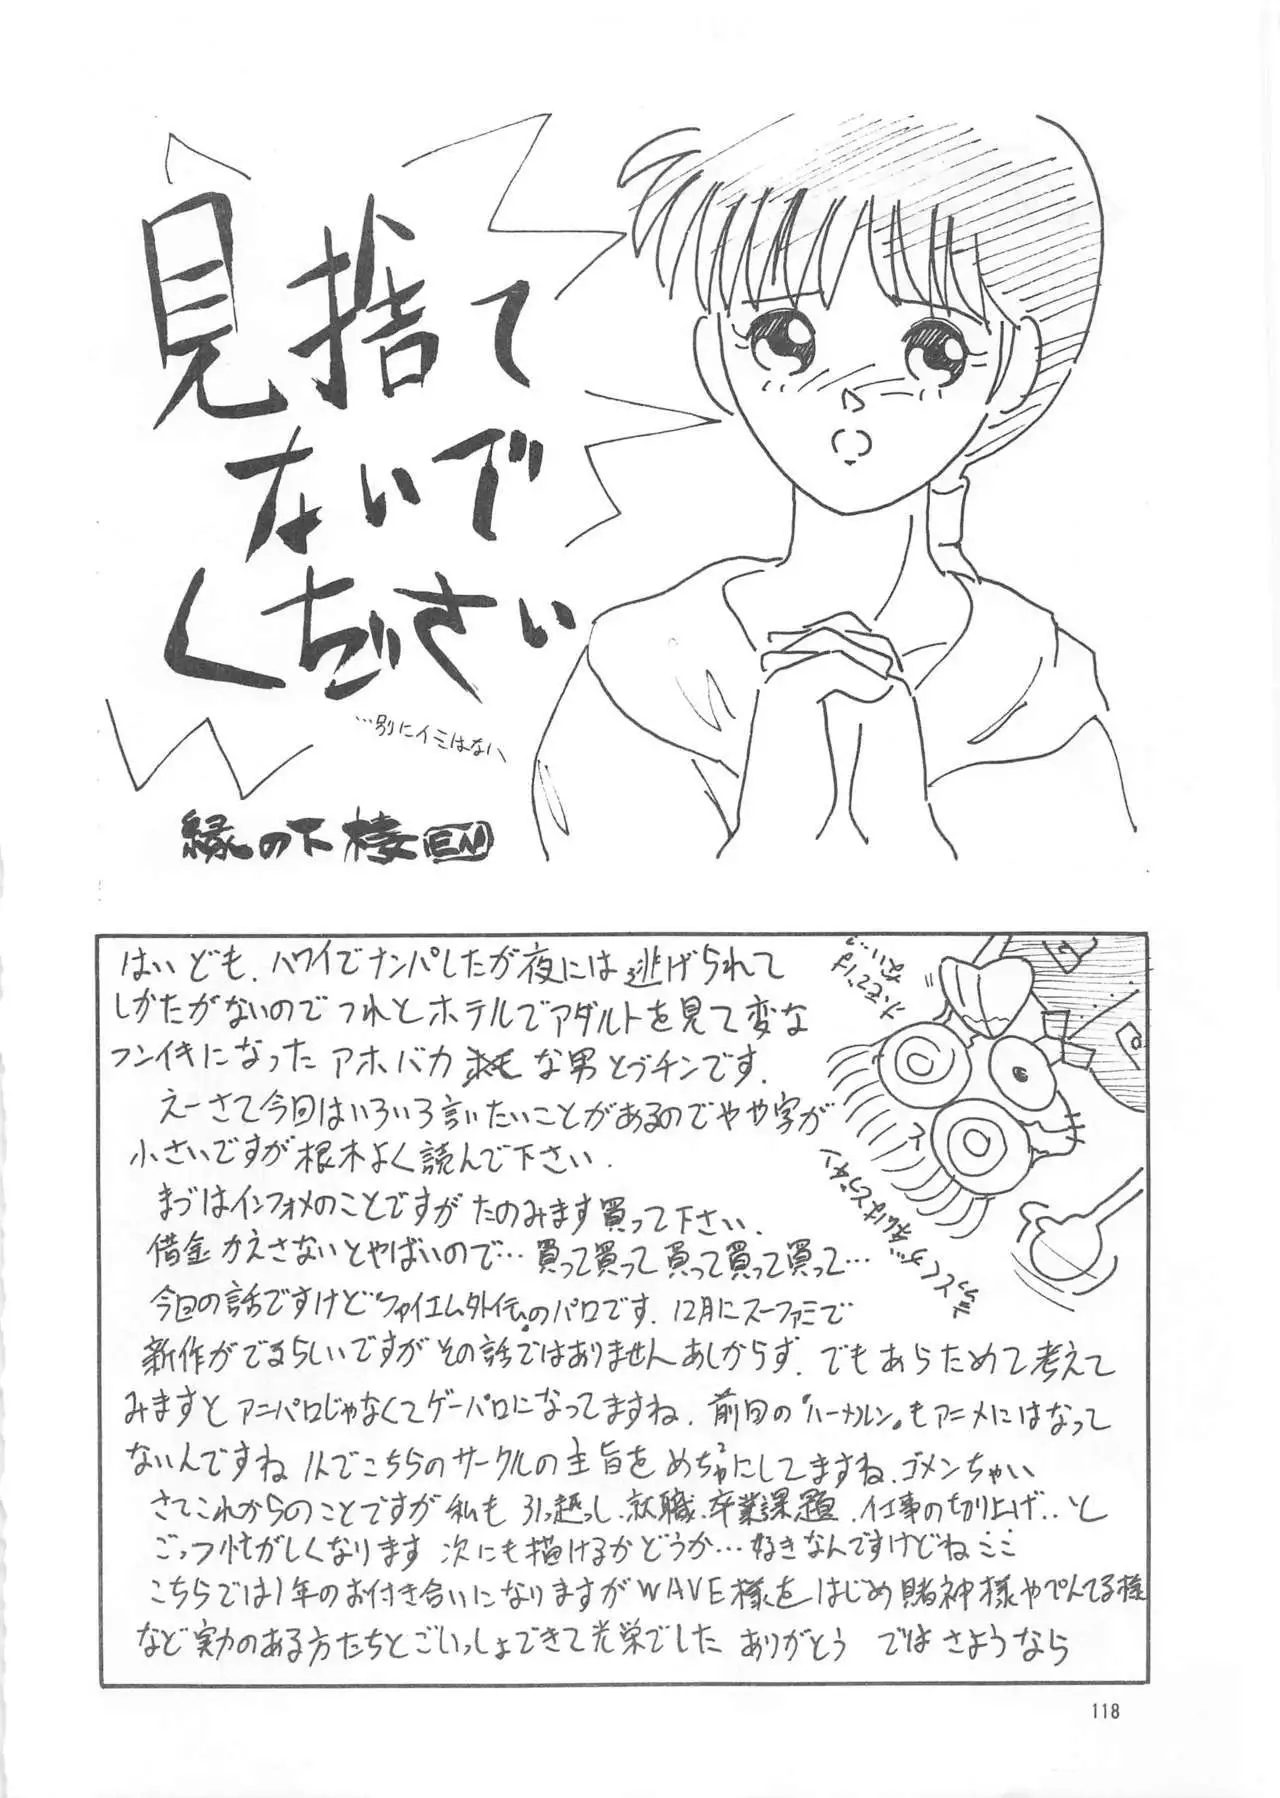 見捨て
ないで
ください
…別にイミはない
縁の下 棲 EN
はい ども、ハワイでナンパしたが夜には逃げられて
しかたがないのでつれとホテルでアダルトを見て変な
フンイキになった アホバカ な男 とづチンです。
えーさて今回はいろいろ言いたいことがあるのでやや字が
小さいですが根木よく読んで下さい.
まづはインフォメのことですが たのみます買って下さい.
借金 かえさないとやばいので…買って買って買って買って買って…
今回の話ですけど"ファイエム外伝"のパロです. 12月にスーファミで
新作がでるらしいですがその話ではありませんあしからず. でもあらためて考えて
みますと アニパロじゃなくてゲーパロになってますね. 前回の"ハーメルン"もアニメにはなって
ないんですね 1人でこちらのサークルの主旨をめちゅ2にしてますね. ゴメンちゃい
さてこれからのことですが 私も 引っ越し.就職.卒業課題.仕事の切り上げ..と
ごっつ忙がしくなります 次にも描けるかどうか…好きなんですけどねミミ
こちらでは1年のお付き合いになりますがWAVE様をはじめ賭神様やぺんてる様
など実力のある方たちとごいっしょできて光栄でした ありがとう ではさようなら
118